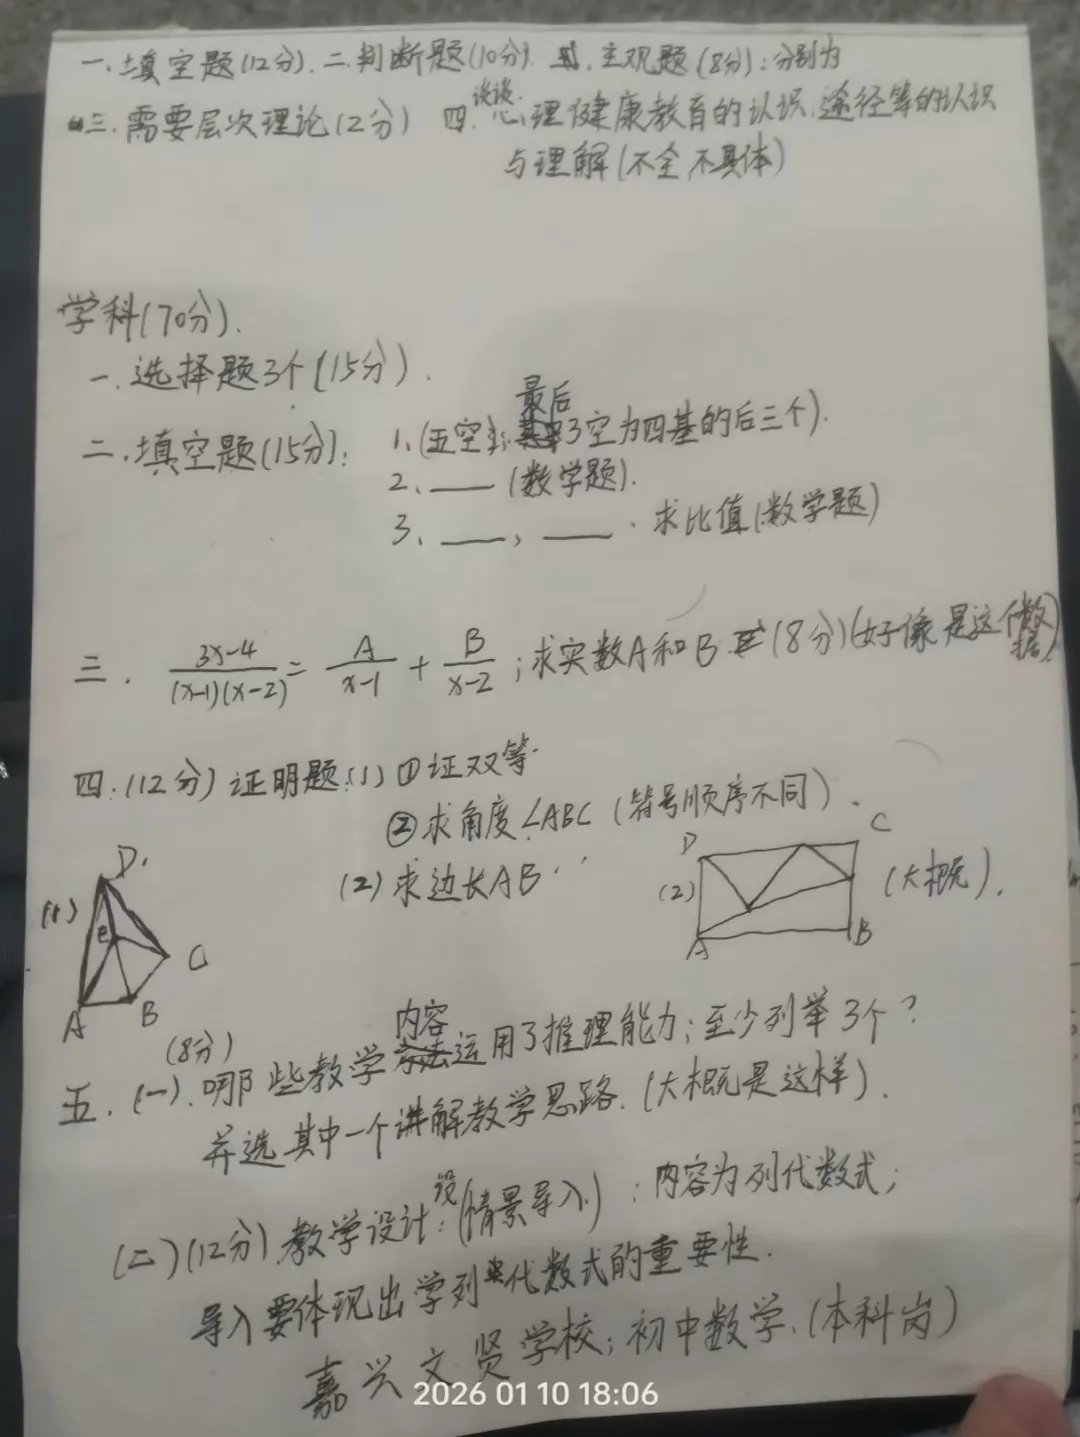 一.填空题(12分).二.判断题(10分). 主观题(8分):分别为
三.需要层次理论(2分) 四.谈谈.心理健康教育的认识,途径等的认识
与理解(不全,不具体)
学科(70分).
一.选择题3个(15分).
二.填空题(15分): 1.(五空);最后3空为四基的后三个).
2.___(数学题).
3.___,___.求比值(数学题)
三. (3x-4)/((x-1)(x-2)) = A/(x-1) + B/(x-2) ;求实数A和B.(8分)(好像是这个数据)
四.(12分)证明题:(1)①证双等.
②求角度∠ABC(符号顺序不同).
(2)求边长AB.
(1) D. E A B C
(2) D C A B (大概).
五.(一).(8分)哪些教学内容运用了推理能力;至少列举3个?
并选其中一个讲解教学思路.(大概是这样).
(二)(12分).教学设计:设(情景导入.):内容为列代数式;
导入要体现出学列代数式的重要性.
嘉兴文贤学校;初中数学.(本科岗)
2026 01 10 18:06